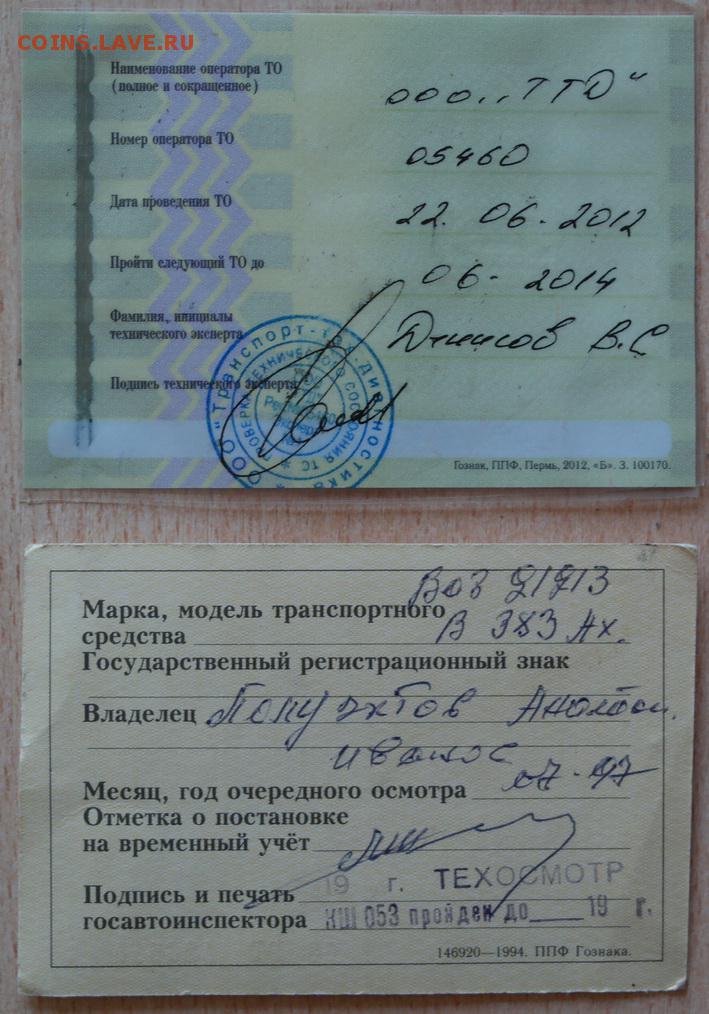 COINS.LAVE.RU
Наименование оператора ТО
(полное и сокращенное)
ООО „ТТД“
Номер оператора ТО
05460
Дата проведения ТО
22. 06. 2012
Пройти следующий ТО до
06 - 2014
Фамилия, инициалы
технического эксперта
Денисов В.С
Подпись технического эксперта
ООО "Транспорт-Тех-Диагностика
ПРОВЕРКА ТЕХНИЧЕСКОГО СОСТОЯНИЯ ТС
Гознак, ППФ, Пермь, 2012, «Б». З. 100170.
Марка, модель транспортного
средства
В 383 Ах.
Государственный регистрационный знак
Владелец
Месяц, год очередного осмотра
07-97
Отметка о постановке
на временный учёт
Подпись и печать
19 г. ТЕХОСМОТР
госавтоинспектора
КШ 053 пройден до ____ 19 г.
146920—1994. ППФ Гознака.